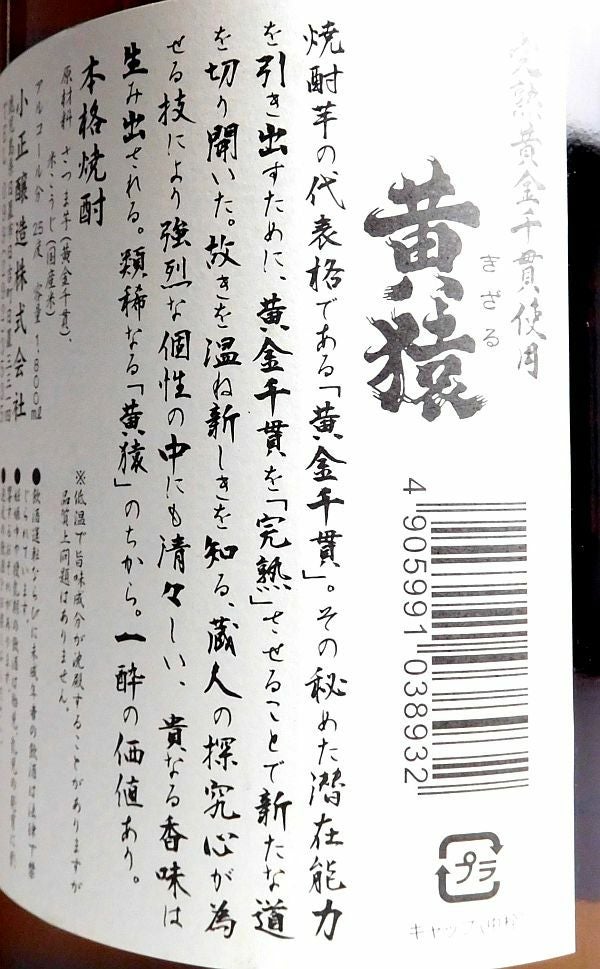 完熟黄金千貫使用
きざる
黄猿
4 905991 038932
プラ
焼酎芋の代表格である「黄金千貫」。その秘めた潜在能力
を引き出すために、黄金千貫を「完熟」させることで新たな道
を切り開いた。故きを温ね新しきを知る、蔵人の探究心が為
せる技により強烈な個性の中にも清々しい、貴なる香味は
生み出される。類稀なる「黄猿」のちから。一酔の価値あり。
本格焼酎
原材料 さつま芋(黄金千貫)、
米こうじ(国産米)
アルコール分 25度 容量 1,800ml
小正醸造株式会社
※低温で旨味成分が沈殿することがありますが
品質上問題はありません。
●飲酒運転ならびに未成年者の飲酒は法律で禁
じられています。